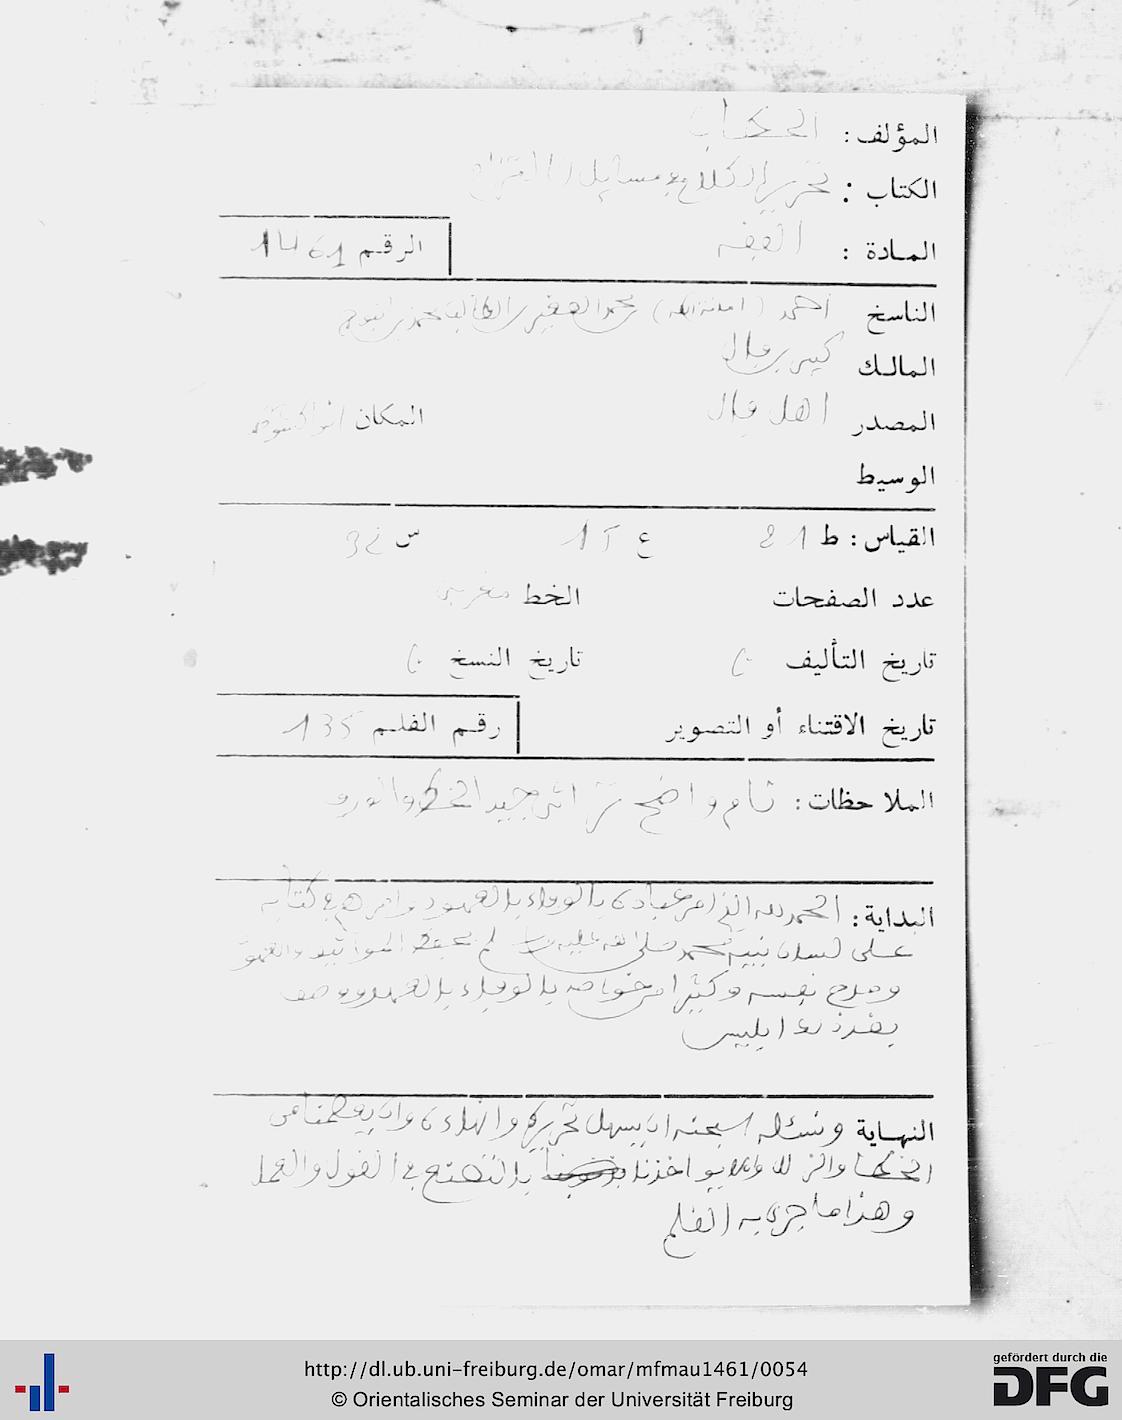 المؤلف : الحطاب
الكتاب : تحرير الكلام في مسايل الالتزام
المادة : الفقه
الرقم 1461
الناسخ احمد بن محمد الصغير بن الطالب محمد بن
المالك
المصدر اهل
المكان انواكشوط
الوسيط
القياس : ط 21 ع 17 س
عدد الصفحات الخط مغربي
تاريخ التأليف تاريخ النسخ
تاريخ الاقتناء أو التصوير
رقم الفلم 135
الملاحظات : تام واضح جيد الخط والورق
البداية : الحمد لله الذي امر عباده بالوفاء بالعهود وامرهم في كتابه
على لسان نبيه محمد صلى الله عليه وسلم بحفظ المواثيق والعقود
ومدح نفسه وكثيرا من خواصه بالوفاء بالعهد ووصف
بضد ذلك ابليس
النهاية ونسئله سبحنه ان يسهل تحريره وانهاءه وان يعصمنا من
الخطا والزلل ولا يواخذنا بالتصنع في القول والعمل
وهذا ما جرى به القلم
http://dl.ub.uni-freiburg.de/omar/mfmau1461/0054
© Orientalisches Seminar der Universität Freiburg
gefördert durch die
DFG